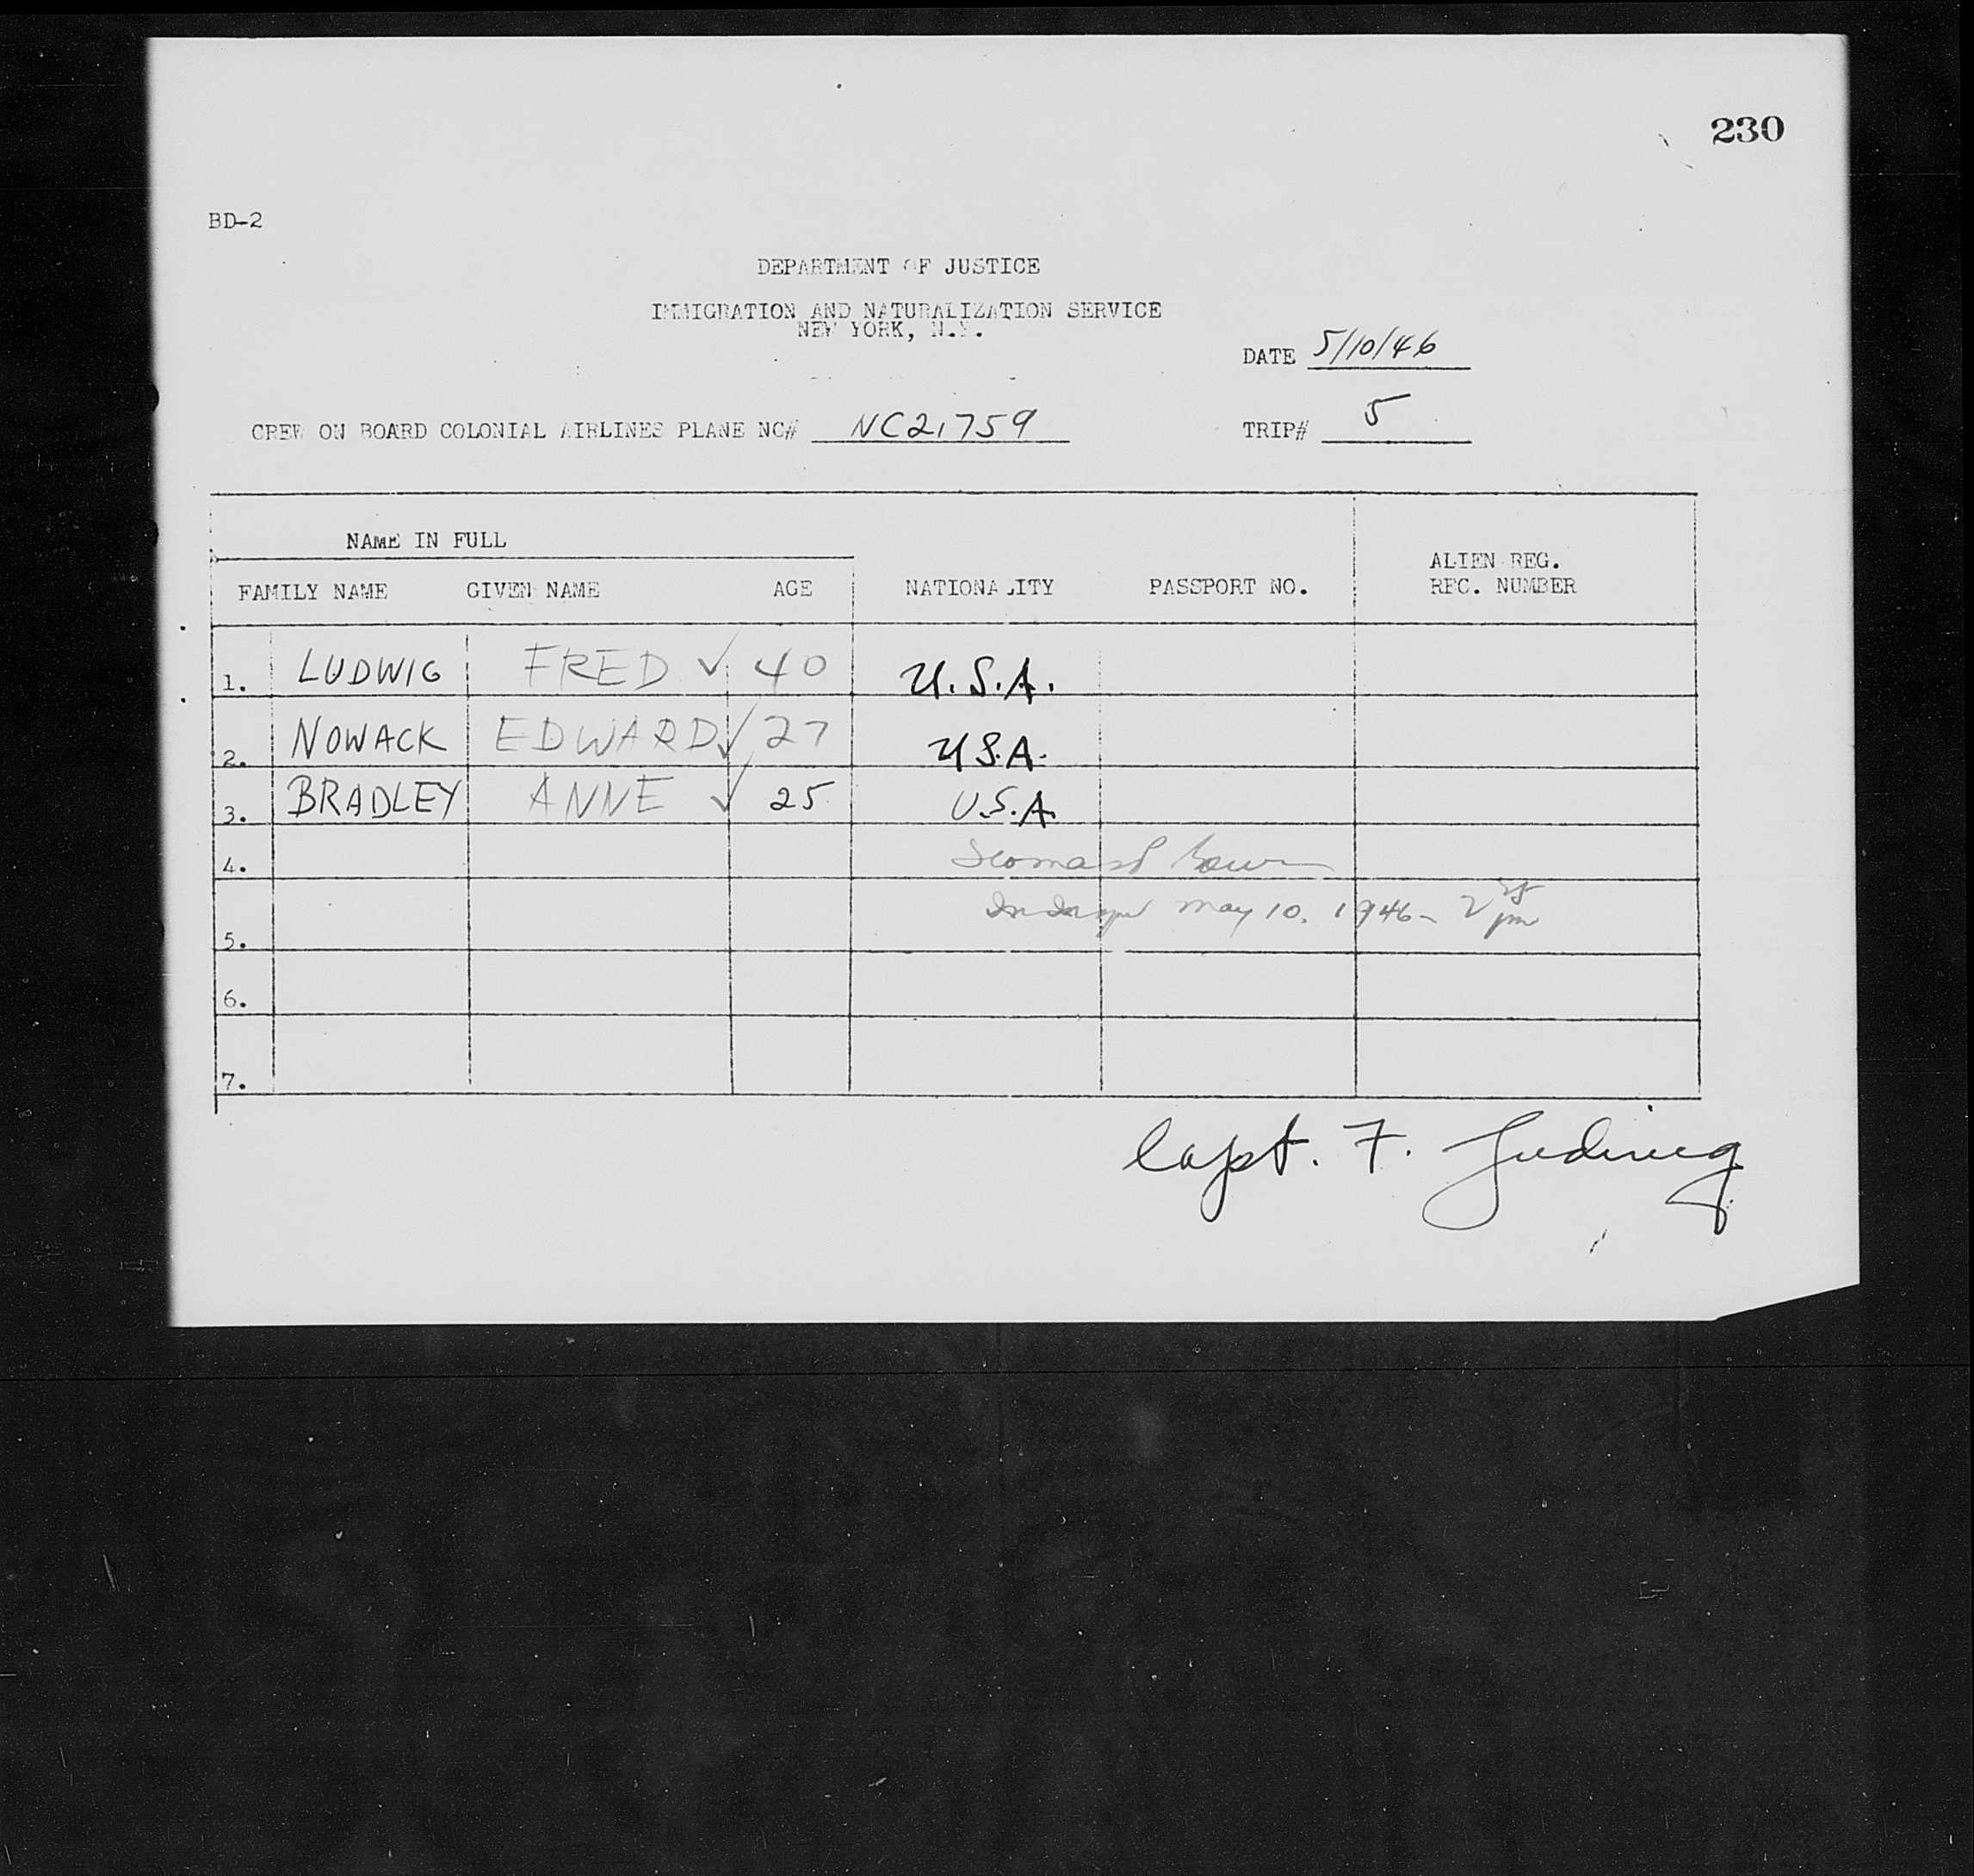 230
BD-2
DEPARTMENT OF JUSTICE
IMMIGRATION AND NATURALIZATION SERVICE
NEW YORK, N.Y.
DATE 5/10/46
CREW ON BOARD COLONIAL AIRLINES PLANE NC# NC21759 TRIP# 5
NAME IN FULL
FAMILY NAME GIVEN NAME AGE NATIONALITY PASSPORT NO. ALIEN REG. REC. NUMBER
1. LUDWIG FRED ✓ 40 U.S.A.
2. NOWACK EDWARD ✓ 27 U.S.A.
3. BRADLEY ANNE ✓ 25 U.S.A.
4.
May 10, 1946 - 2 pm
5.
6.
7.
Capt. F. Ludwig